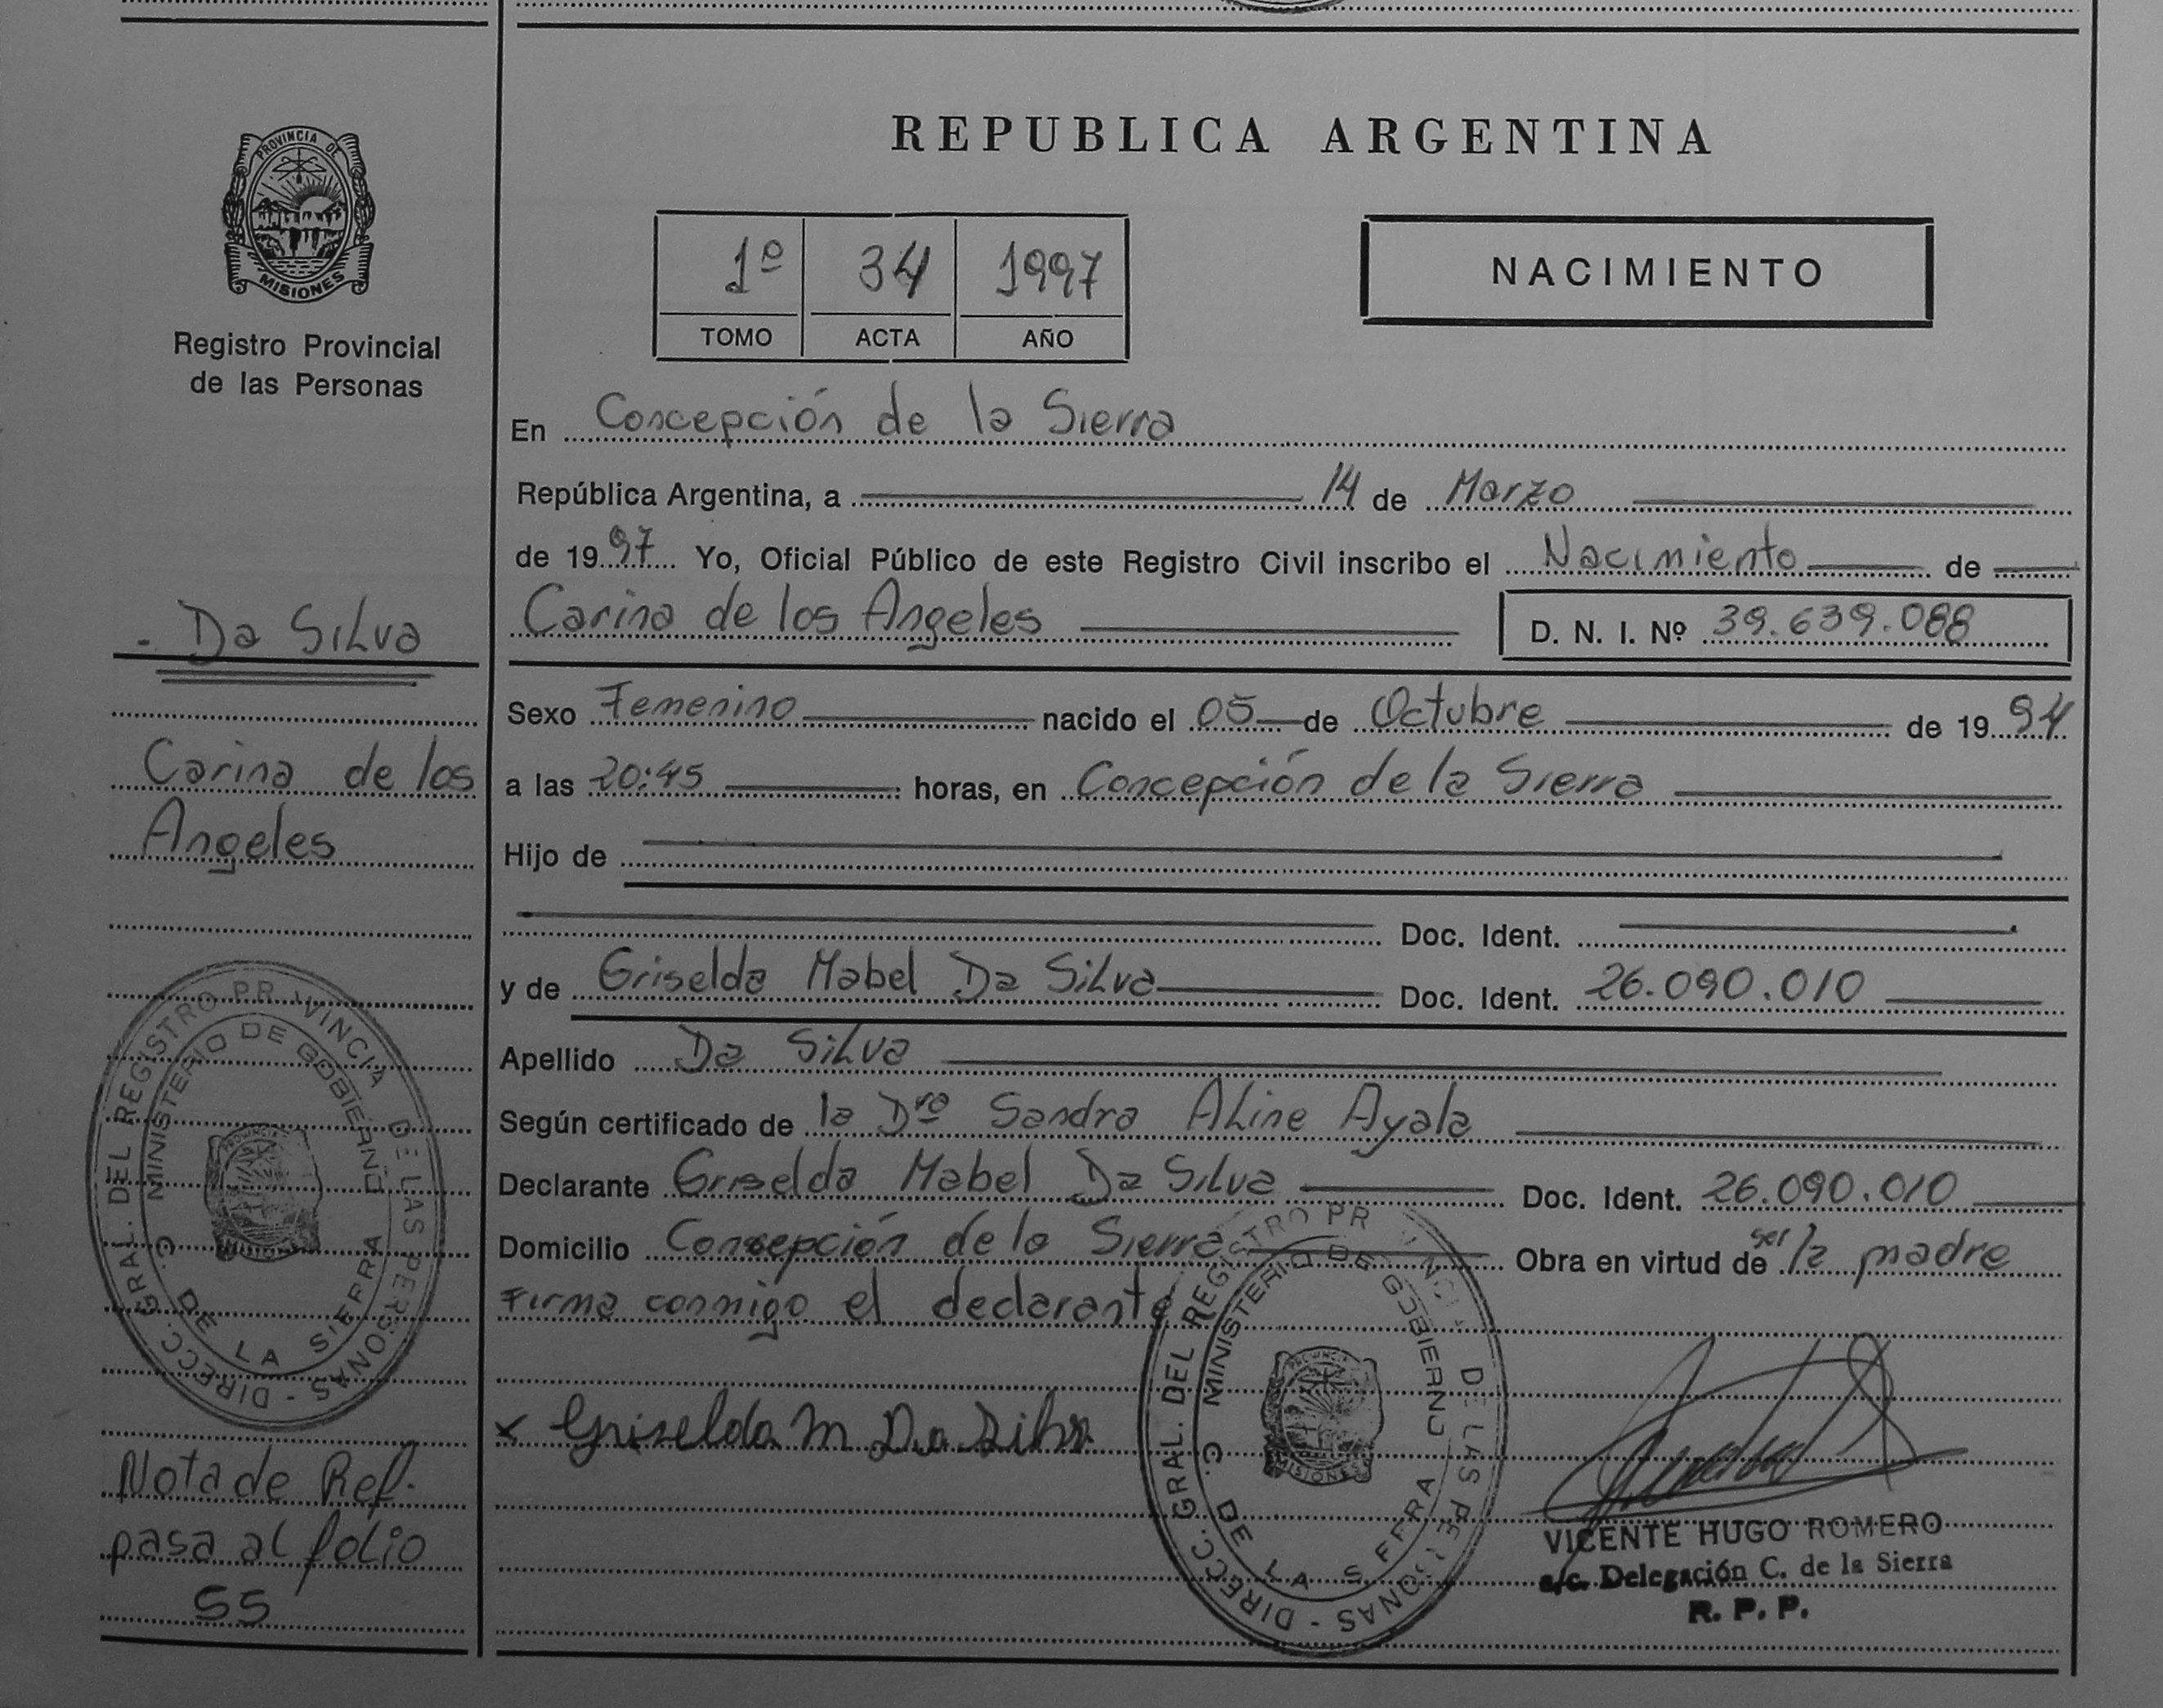 PROVINCIA DE
MISIONES
Registro Provincial
de las Personas
- Da Silva
Carina de los
Angeles
DIRECC. GRAL. DEL REGISTRO PR VINCIA DE LAS PERSONAS -
MINISTERIO DE GOBIERNO
C. DE LA SIERRA
MISIONES
Nota de Ref.
pasa al folio
55
REPUBLICA ARGENTINA
1º 34 1997
TOMO ACTA AÑO
NACIMIENTO
En Concepción de la Sierra
República Argentina, a 14 de Marzo
de 1997 Yo, Oficial Público de este Registro Civil inscribo el Nacimiento de
Carina de los Angeles D. N. I. Nº 39.639.088
Sexo Femenino nacido el 05 de Octubre de 1994
a las 20:45 horas, en Concepción de la Sierra
Hijo de
Doc. Ident.
y de Griselda Mabel Da Silva Doc. Ident. 26.090.010
Apellido Da Silva
Según certificado de la Dra Sandra Aline Ayala
Declarante Griselda Mabel Da Silva Doc. Ident. 26.090.010
Domicilio Concepción de la Sierra Obra en virtud de ser la madre
Firma conmigo el declarante
x Griselda M Da Silva
DIRECC. GRAL. DEL REGISTRO PR VINCIA DE LAS PERSONAS -
MINISTERIO DE GOBIERNO
C. DE LA SIERRA
MISIONES
VICENTE HUGO ROMERO
a/c. Delegación C. de la Sierra
R. P. P.